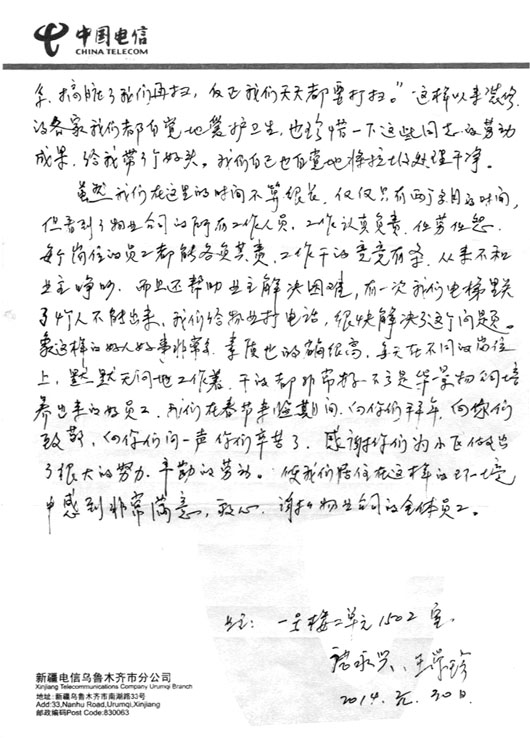 中国电信
CHINA TELECOM
系，搞脏了我们再扫，反正我们天天都要打扫。”这样以来装修
的各家我们都自觉地爱护卫生，也珍惜一下这些同志的劳动
成果，给我带了个好头。我们自己也自觉地将垃圾处理干净。
虽然我们在这里的时间不算很长，仅仅只有两个多月的时间，
但看到了物业公司的所有工作人员，工作认真负责，任劳任怨，
每个岗位的员工都能各负其责，工作干的竞竞有条，从来不和
业主争吵，而且还帮助业主解决困难，有一次我们电梯里关
了4个人不能出来，我们给物业打电话，很快解决了这个问题。
象这样的好人好事非常多，素质也的确很高，每天在不同的岗位
上，默默无闻地工作着，干的都非常好，不亏是华景物门培
养出来的好员工，我们在春节来临期间，向你们拜年，向你们
致敬，向你们问一声你们辛苦了，感谢你们为小区做出
了很大的努力，辛勤的劳动。使我们居住在这样的环境
中感到非常满意，放心，谢谢物业公司的全体员工。
业主：一号楼二单元1502室。
永兴、王 珍
2014.元.30日
新疆电信乌鲁木齐市分公司
Xinjiang Telecommunications Company Urumqi Branch
地址：新疆乌鲁木齐市南湖路33号
Add:33,Nanhu Road,Urumqi,Xinjiang
邮政编码Post Code:830063